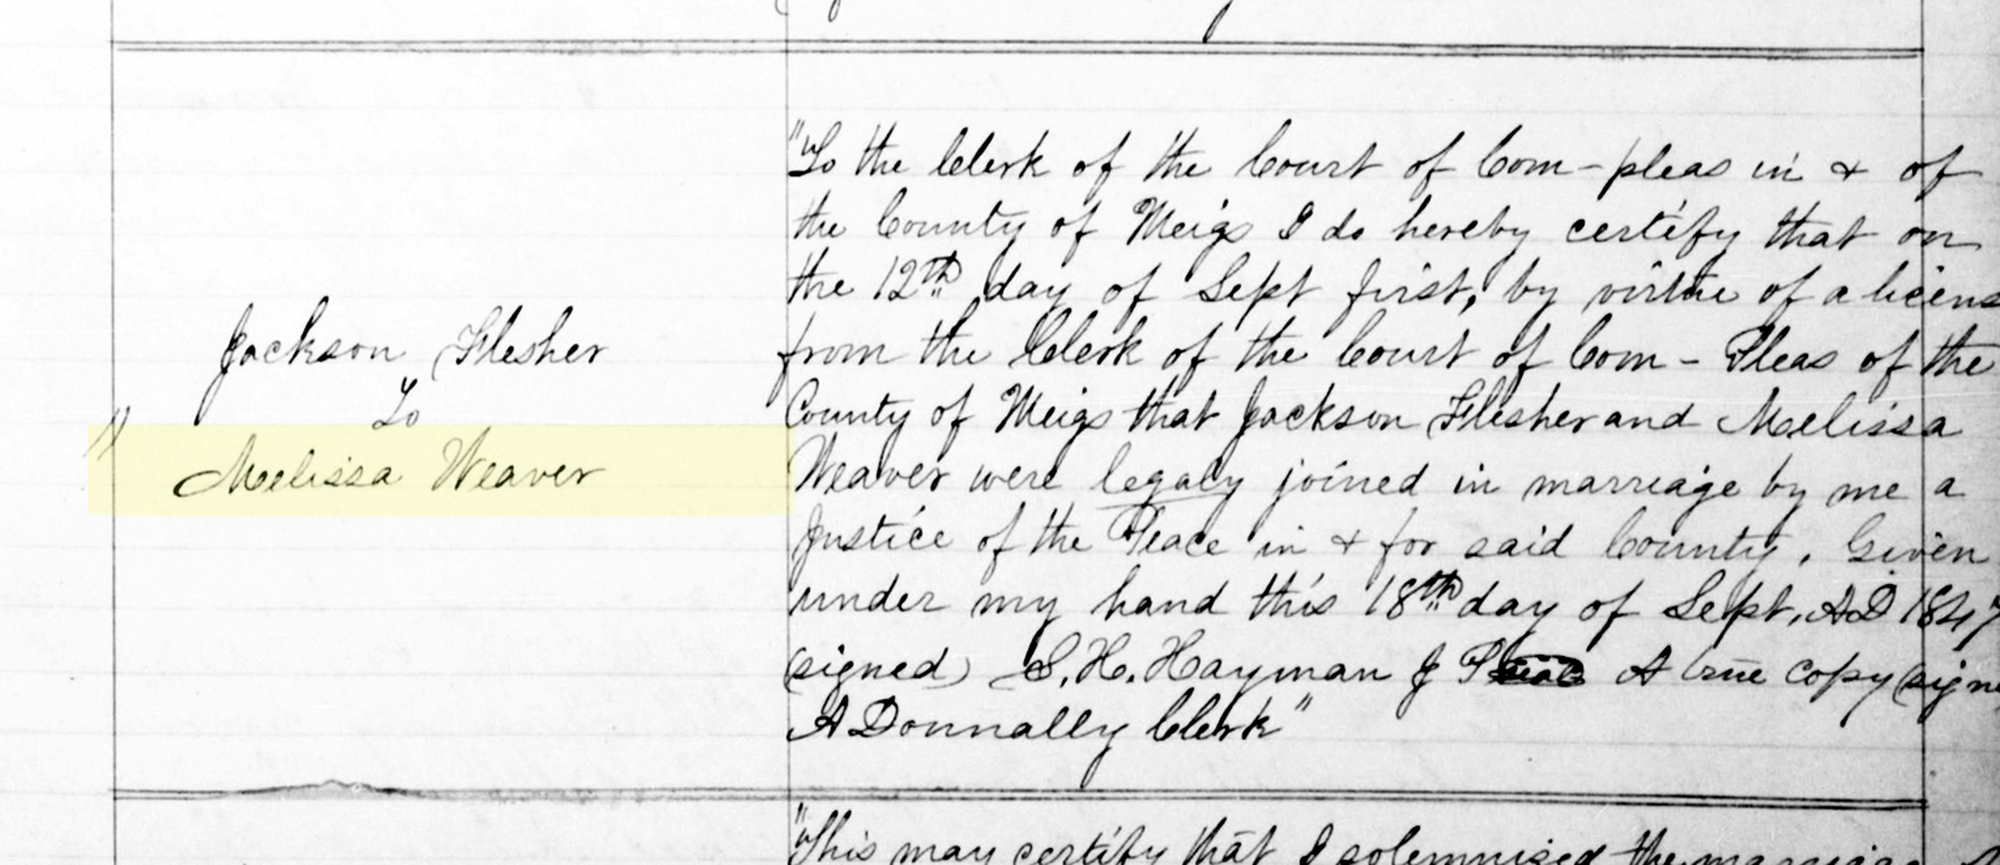 Jackson Flesher
To
" Melissa Weaver
"To the Clerk of the Court of Com-pleas in & of
the County of Meigs I do hereby certify that on
the 12th day of Sept first, by virtue of a licens
from the Clerk of the Court of Com - Pleas of the
County of Meigs that Jackson Flesher and Melissa
Weaver were legaly joined in marriage by me a
Justice of the Peace in & for said County. Given
under my hand this 18th day of Sept. AD 1847
(signed) S. H. Hayman J P A true Copy (signe
A Donnally Clerk"
"This may certify that I solemnised the marriag